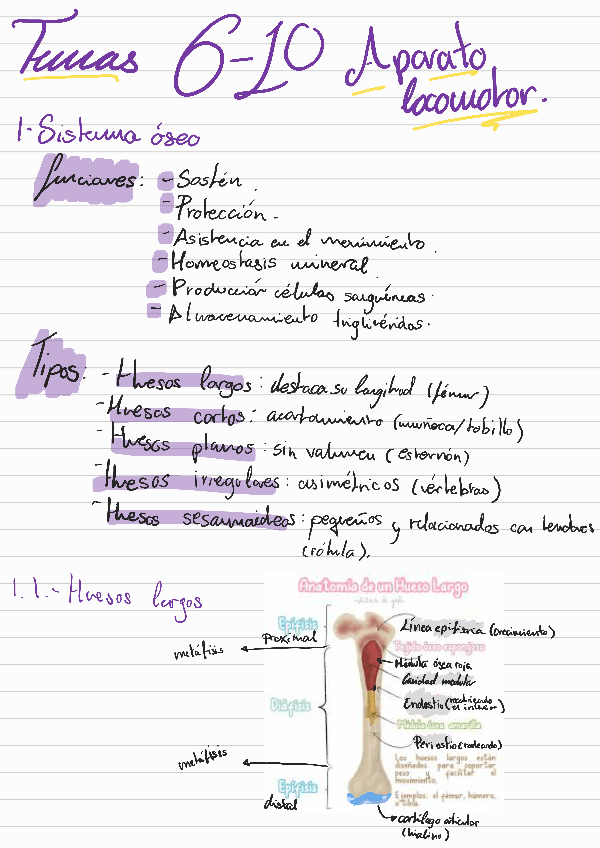 Temas 6-10 Aparato
locomotor.
1-Sistema óseo
funciones: - Sostén.
- Protección.
- Asistencia en el movimiento.
- Homeostasis mineral.
- Producción células sanguíneas.
- Almacenamiento triglicéridos.
Tipos: - Huesos largos: destaca su longitud (fémur)
- Huesos cortos: acortamiento (muñeca/tobillo)
- Huesos planos: sin volumen (esternón)
- Huesos irregulares: asimétricos (vértebras)
- Huesos sesamoideos: pequeños y relacionados con tendones
(rótula).
1.1.- Huesos largos
Anatomía de un Hueso Largo
Epífisis
proximal
Línea epifisiaria (crecimiento)
metáfisis
Tejido óseo esponjoso
Médula ósea roja
Cavidad medular
Diáfisis
Endostio (recubriendo
el interior)
Médula ósea amarilla
Periostio (rodeando)
metáfisis
Los huesos largos están
diseñados para soportar
peso y facilitar el
movimiento.
Epífisis
distal
Ejemplos: el fémur, húmero,
o tibia.
cartílago articular
(hialino)